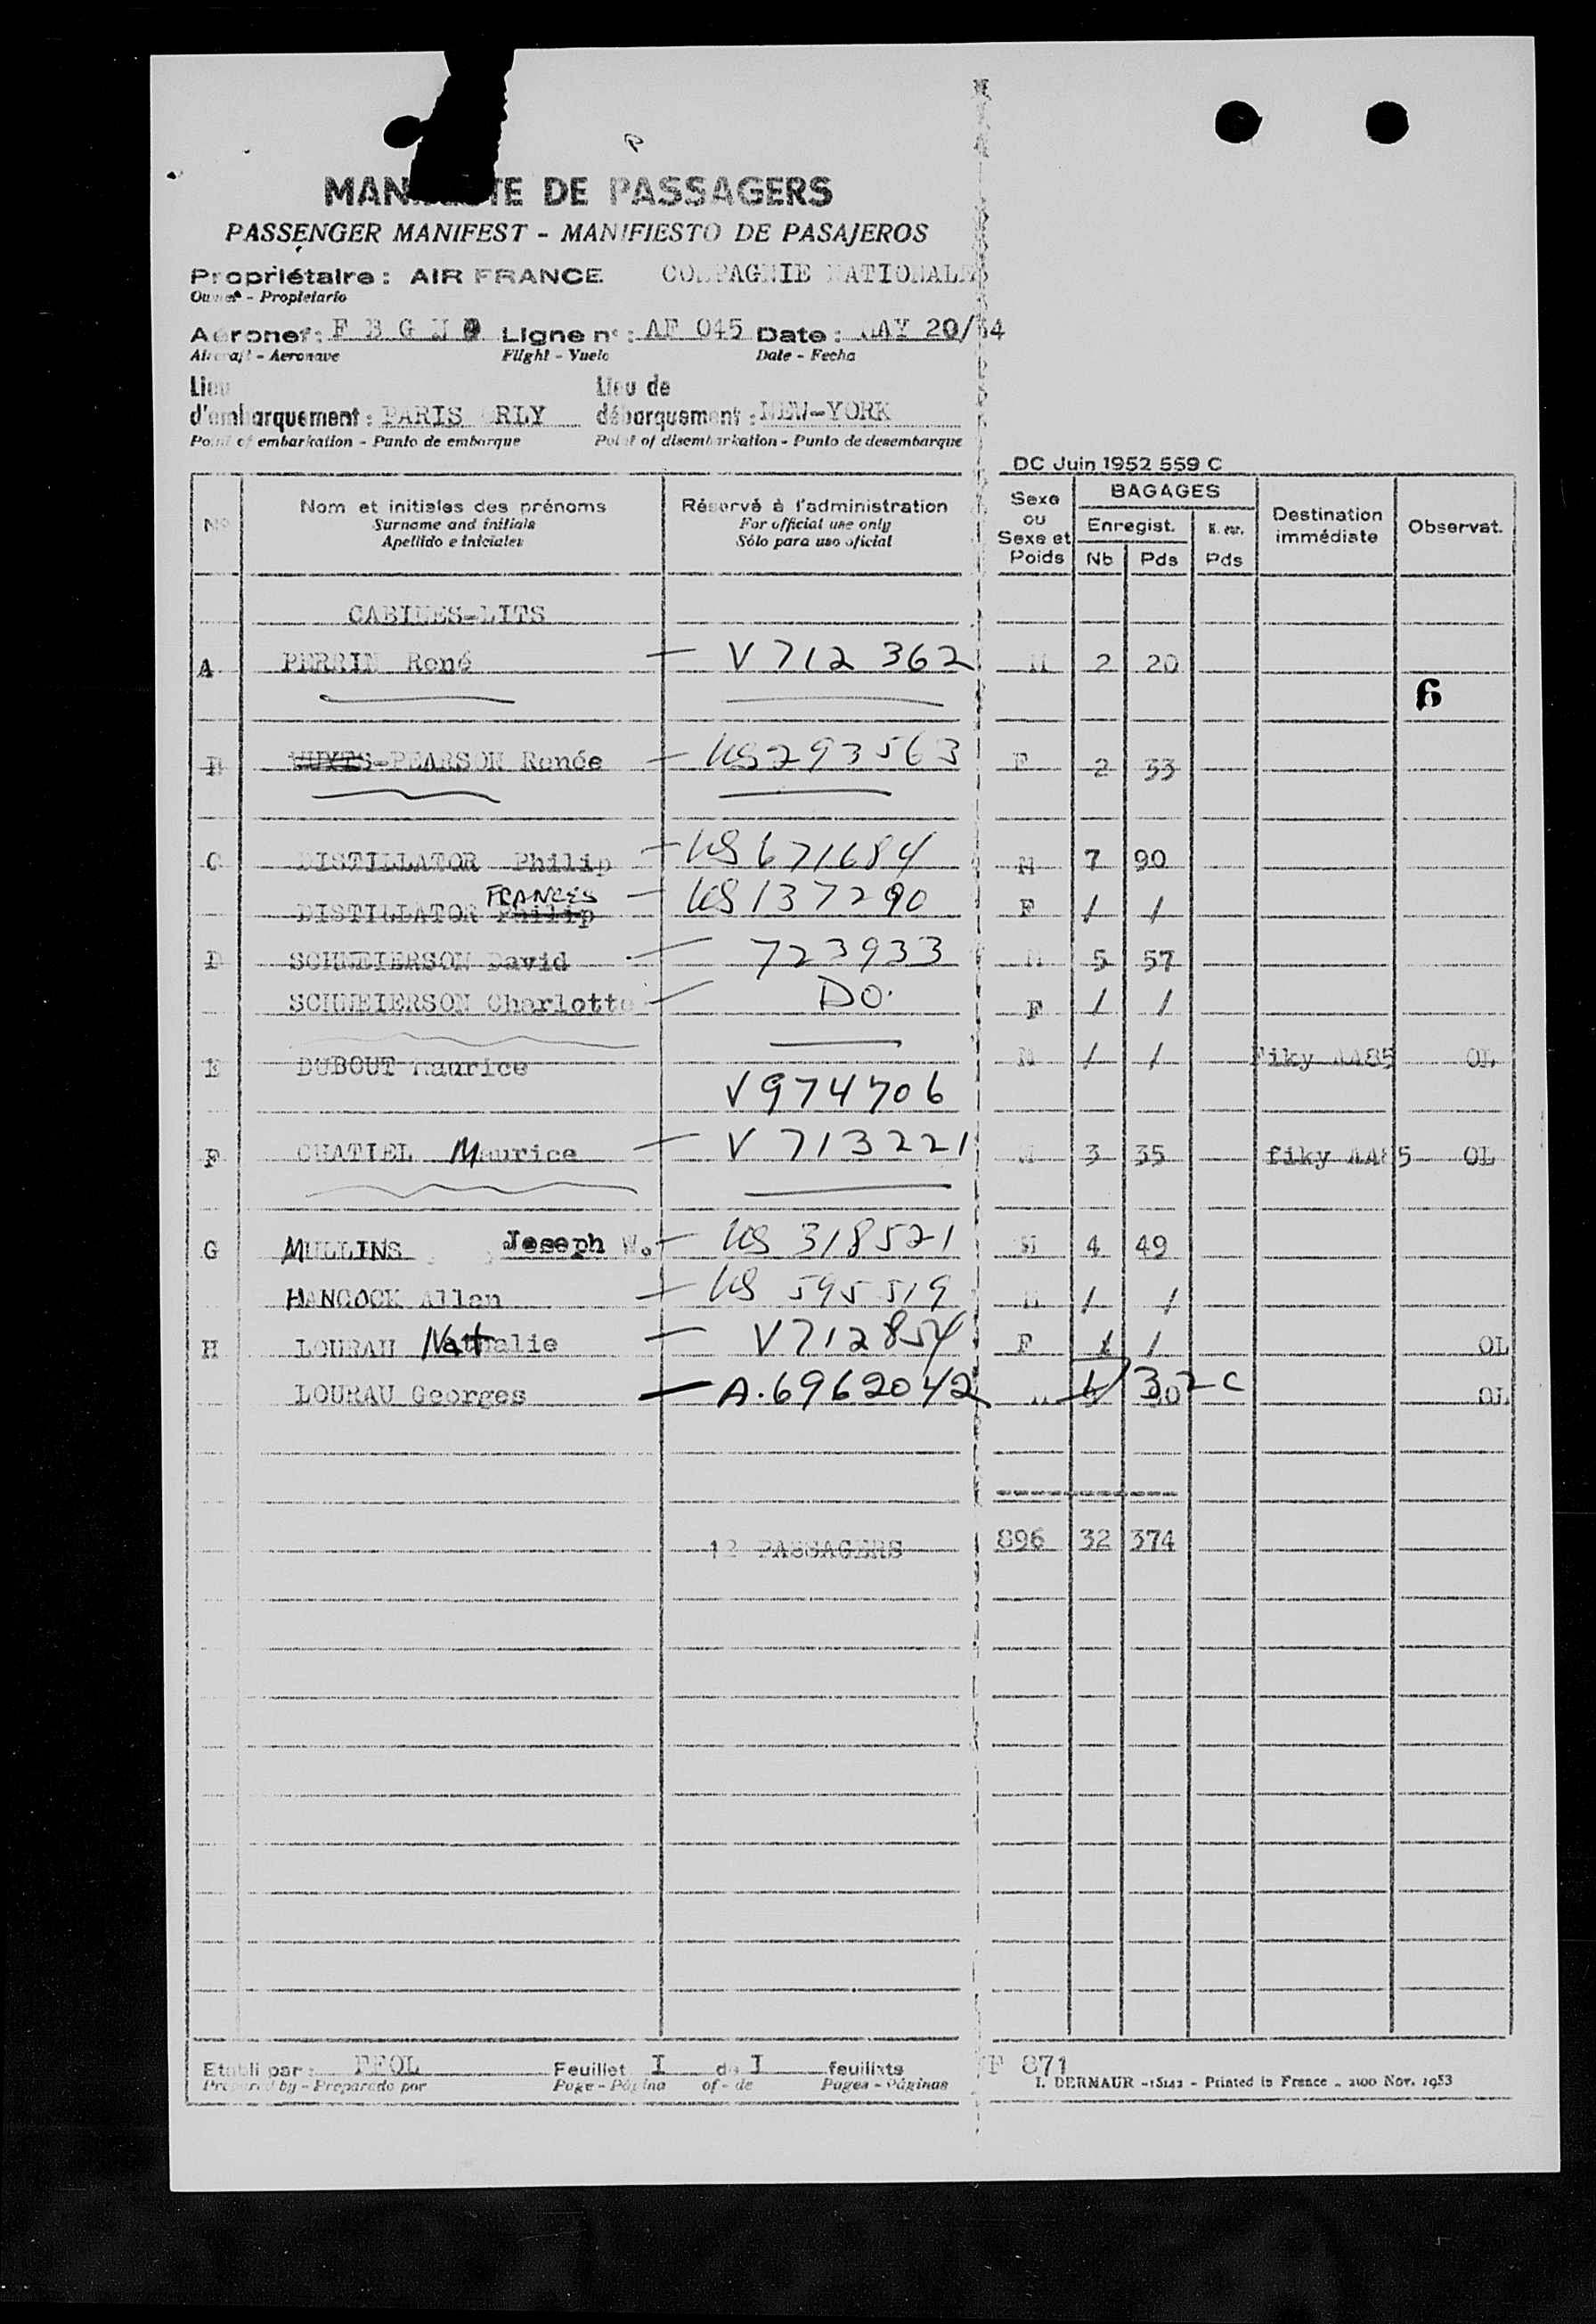 DE PASSAGERS
PASSENGER MANIFEST - MANIFIESTO DE PASAJEROS
Propriétaire : AIR FRANCE COMPAGNIE NATIONALE
Owner - Propietario
Aéronef : F B G N Ligne n° : AF 045 Date : MAY 20/54
Aircraft - Aeronave Flight - Vuelo Date - Fecha
Lieu Lieu de
d'embarquement : PARIS ORLY débarquement : NEW-YORK
Point of embarkation - Punto de embarque Point of disembarkation - Punto de desembarque
DC Juin 1952 559 C
N° Nom et initiales des prénoms Réservé à l'administration Sexe ou Sexe et Poids BAGAGES Destination immédiate Observat.
Surname and initials For official use only Enregist.
Apellido e iniciales Sólo para uso oficial Nb Pds Pds
CABINES-LITS
A PERRIN René — V 712 362 M 2 20
6
B -PEARSON Renée — US 293563 F 2 33
C DISTILLATOR Philip — US 671684 M 7 90
DISTILLATOR Philip FRANCES — US 137290 F / /
D SCHNEIERSON David — 723933 M 5 57
SCHNEIERSON Charlotte — DO. F / /
E DUBOUT Maurice V 974706 M / / Fiky AA85 OL
F CHATIEL Maurice — V 713221 M 3 35 fiky AA85 OL
G MULLINS Joseph W. — US 318521 M 4 49
HANCOCK Allan — US 595519 M / /
H LOURAU Nathalie — V 712854 F / / OL
LOURAU Georges — A. 6962042 M C OL
12 PASSAGERS 896 32 374
Etabli par : FFOL Feuillet I de I feuillets 871
Prepared by - Preparado por Page - Página of - de Pages - Páginas I. DERMAUR - 15142 - Printed in France - 2100 Nov. 1953